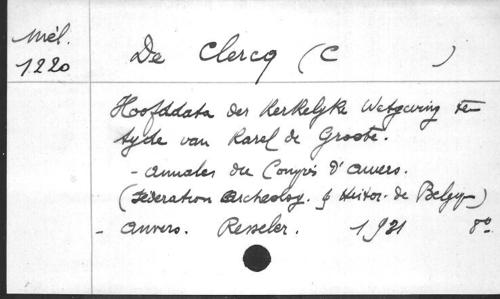 Mél.
1220
De Clercq (C )
Hoofddata der Kerkelyke Wetgeving te
tyde van Karel de Groote.
- Annales du Congrès d'Anvers.
(Féderation Archeolog. & Histor. de Belgiq)
- Anvers. Resseler. 1921 8º